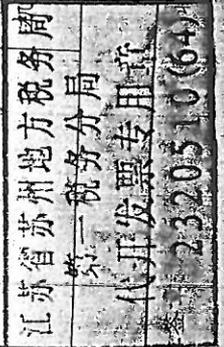 江苏省苏州地方税务局
第一税务分局
代开发票专用章
2320510(64)